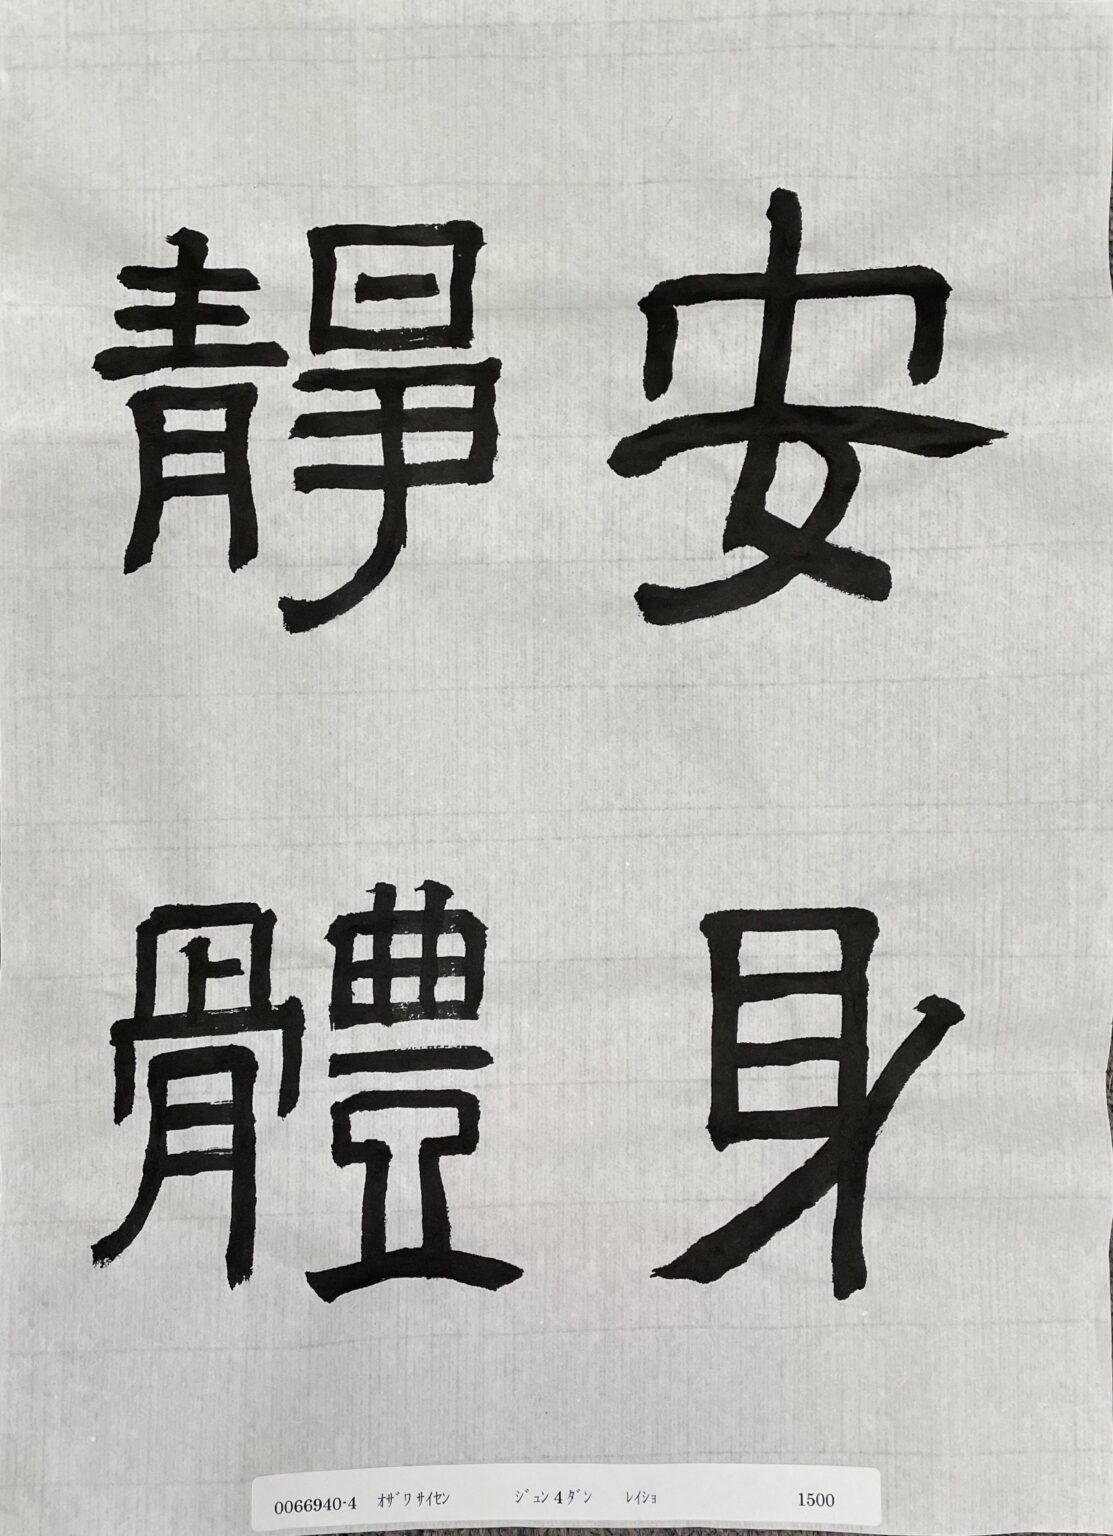 安身
靜體
0066940-4 ｵｻﾞﾜ ｻｲｾﾝ ｼﾞｭﾝ４ﾀﾞﾝ ﾚｲｼｮ 1500